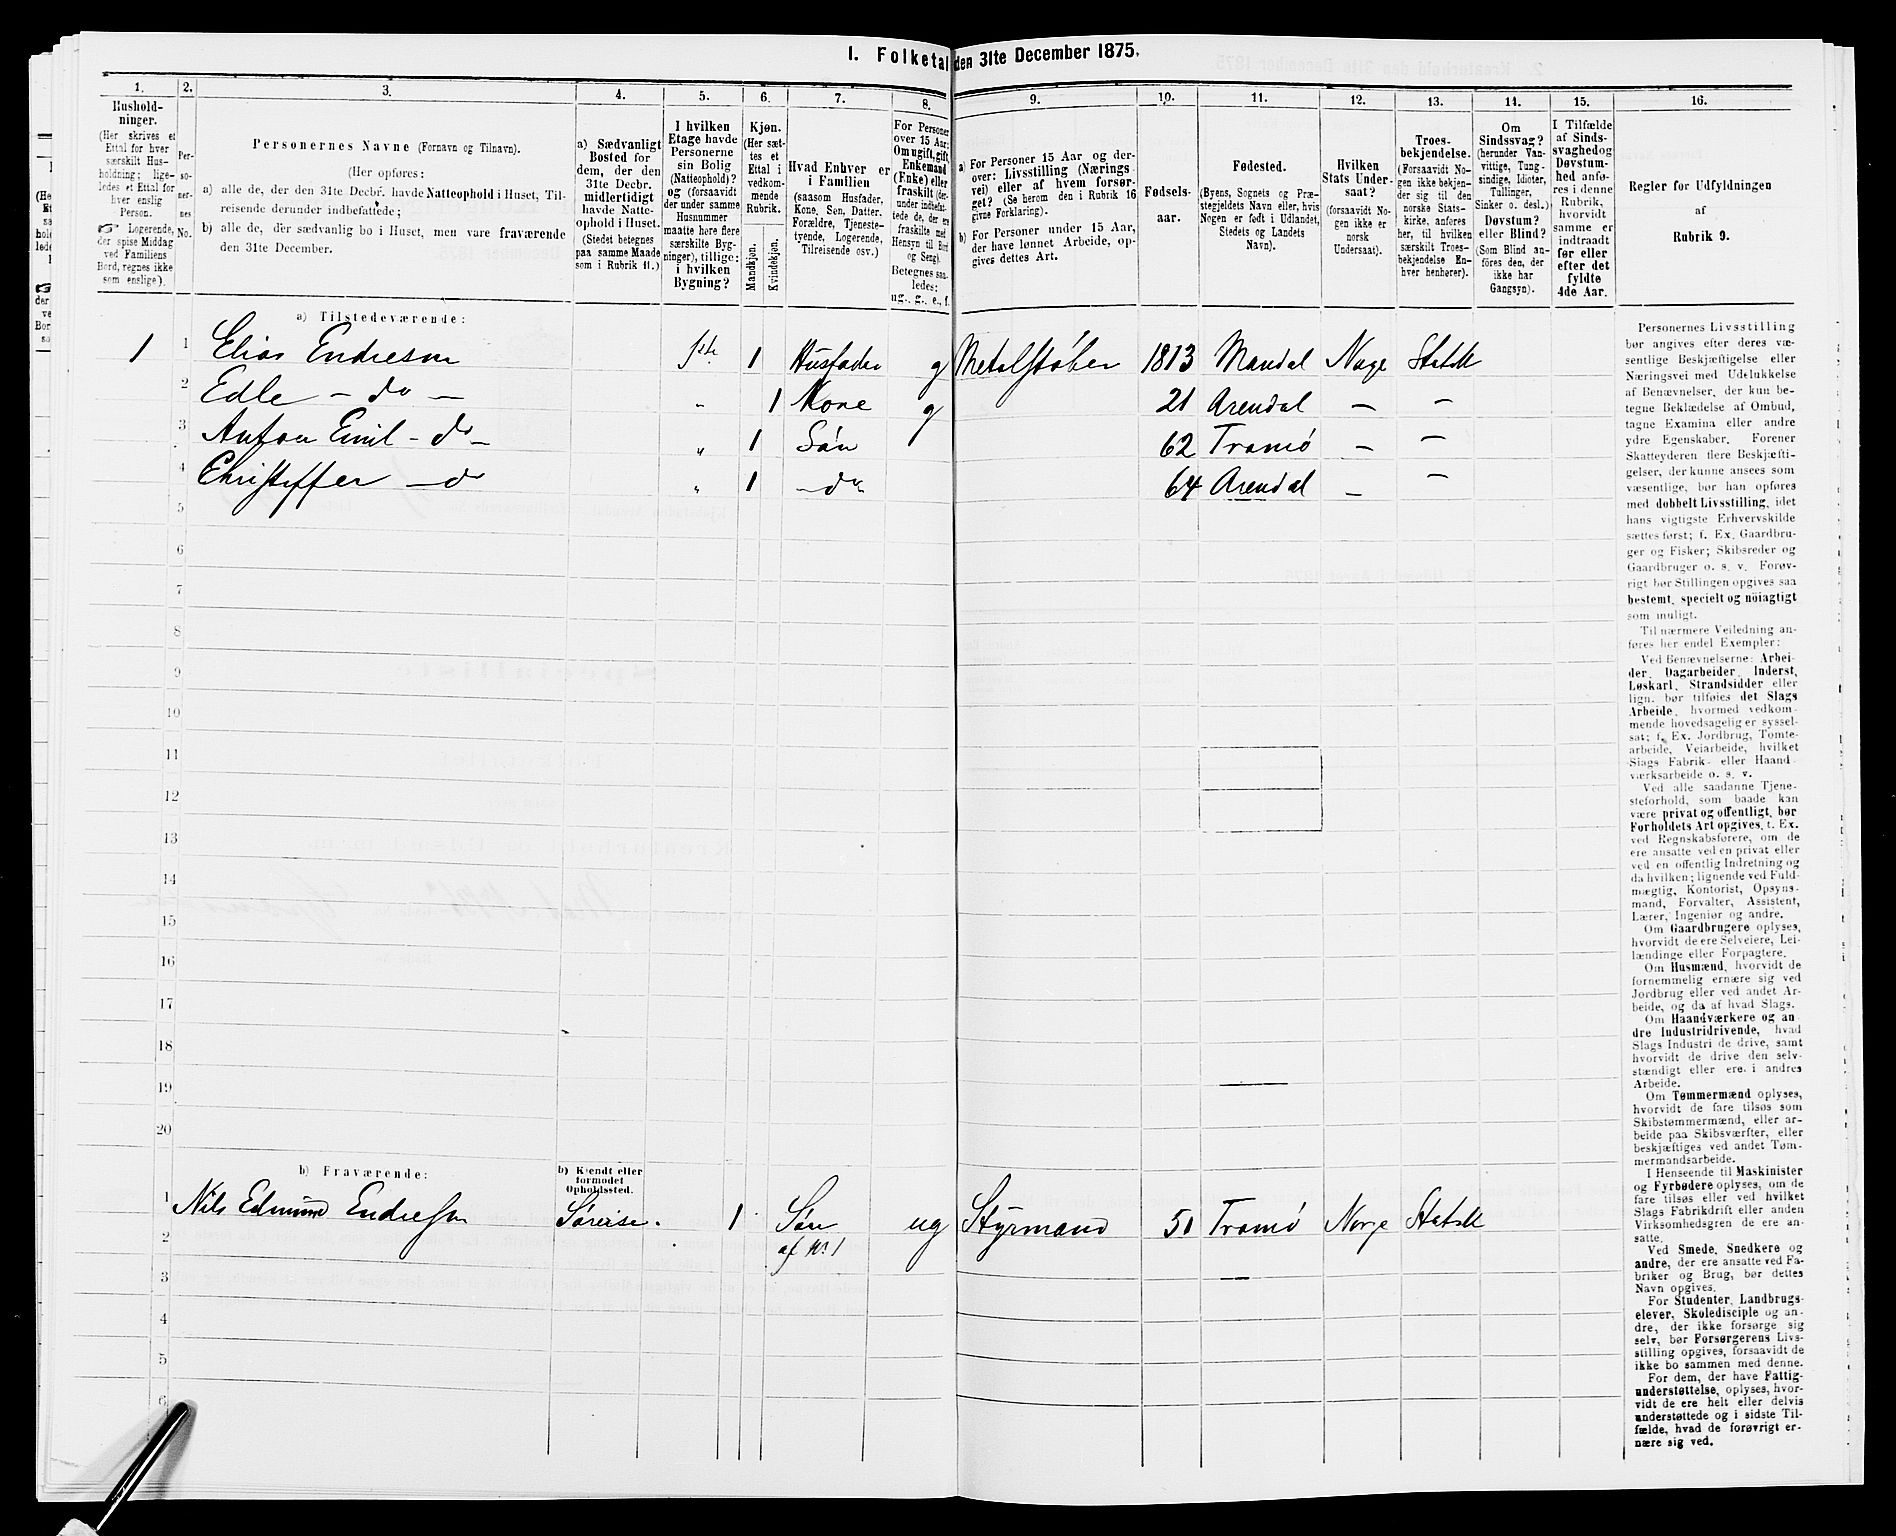 1. Folketal den 31te December 1875.
1. 2. 3. 4. 5. 6. 7. 8. 9. 10. 11. 12. 13. 14. 15. 16.
Hushold-
ninger.
(Her skrives et
Ettal for hver
særskilt Hus-
holdning; lige-
ledes et Ettal for
hver enslig
Person.
☞ Logerende,
der spise Middag
ved Familiens
Bord, regnes ikke
som enslige).
Per-
so-
ner-
nes
No.
Personernes Navne (Fornavn og Tilnavn).
(Her opføres:
a) alle de, der den 31te Decbr. havde Natteophold i Huset, Til-
reisende derunder indbefattede;
b) alle de, der sædvanlig bo i Huset, men vare fraværende
den 31te December.
a) Sædvanligt
Bosted for
dem, der den
31te Decbr.
midlertidigt
havde Natte-
ophold i Huset.
(Stedet betegnes
paa samme Maade
som i Rubrik 11.)
I hvilken
Etage havde
Personerne
sin Bolig
(Natteophold)?
og (forsaavidt
der under samme
Husnummer
maatte høre flere
særskilte Byg-
ninger), tillige:
i hvilken
Bygning?
Kjøn.
(Her sæt-
tes et
Ettal i
vedkom-
mende
Rubrik.
Mandkjøn.
Kvindekjøn.
Hvad Enhver er
i Familien
(saasom Husfader,
Kone, Søn, Datter,
Forældre, Tjeneste-
tyende, Logerende,
Tilreisende osv.)
For Personer
over 15 Aar:
Om ugift, gift,
Enkemand
(Enke) eller
fraskilt (der-
under indbefat-
tede de, der ere
fraskilte med
Hensyn til Bord
og Seng).
Betegnes saa-
ledes:
ug., g., e., f.
a) For Personer 15 Aar og der-
over: Livsstilling (Nærings-
vei) eller af hvem forsør-
get? (Se herom den i Rubrik 16
givne Forklaring).
b) For Personer under 15 Aar,
der have lønnet Arbeide, op-
gives dettes Art.
Fødsels-
aar.
Fødested.
(Byens, Sognets og Præ-
stegjeldets Navn eller, hvis
Nogen er født i Udlandet,
Stedets og Landets
Navn).
Hvilken
Stats Under-
saat?
(forsaavidt No-
gen ikke er
norsk
Undersaat).
Troes-
bekjendelse.
(Forsaavidt No-
gen ikke bekjen-
der sig til den
norske Stats-
kirke, anføres
her, til hvilken
særskilt Troes-
bekjendelse En-
hver henhører).
Om
Sindssvag?
(herunder Van-
vittige, Tung-
sindige, Idioter,
Tullinger,
Sinker o. desl.)
Døvstum?
eller Blind?
(Som Blind an-
føres den, der
ikke har
Gangsyn).
I Tilfælde
af Sinds-
svaghed og
Døvstum-
hed anfø-
res i denne
Rubrik,
hvorvidt
samme er
indtraadt
før eller
efter det
fyldte
4de Aar.
Regler for Udfyldningen
af
Rubrik 9.
a) Tilstedeværende:
1 1 Elias Endresen 1ste 1 Husfader g Metalstøber 1813 Mandal Norge Statsk
2 Edle – do – „ 1 Kone g 21 Arendal – –
3 Anton Emil – do – „ 1 Søn 62 Tromö – –
4 Christoffer – do „ 1 – do – 64 Arendal – –
5
6
7
8
9
10
11
12
13
14
15
16
17
18
19
20
b) Fraværende:
b) Kjendt eller
formodet
Opholdssted.
1 Nils Edmund Endresen Søreise. 1 Søn ug Styrmand 51 Tromö Norge Statsk
2 af No 1
3
4
5
6
Personernes Livsstilling
bør angives efter deres væ-
sentlige Beskjæftigelse eller
Næringsvei med Udelukkelse
af Benævnelser, der kun be-
tegne Beklædelse af Ombud,
tagne Examina eller andre
ydre Egenskaber. Forener
Skatteyderen flere Beskjæfti-
gelser, der kunne ansees som
væsentlige, bør han opføres
med dobbelt Livsstilling, idet
hans vigtigste Erhvervskilde
sættes først; f. Ex. Gaardbru-
ger og Fisker; Skibsreder og
Gaardbruger o. s. v. Forøv-
rigt bør Stillingen opgives saa
bestemt, specielt og nöiagtigt
som muligt.
Til nærmere Veiledning an-
føres her endel Exempler:
Ved Benævnelserne: Arbei-
der, Dagarbeider, Inderst,
Løskarl, Strandsidder eller
lign. bør tilføies det Slags
Arbeide, hvormed vedkom-
mende hovedsagelig er syssel-
sat; f. Ex. Jordbrug, Tomte-
arbeide, Veiarbeide, hvilket
Slags Fabrik- eller Haand-
værksarbeide o. s. v.
Ved alle saadanne Tjene-
steforhold, som baade kan
være privat og offentligt, bør
Forholdets Art opgives, t. Ex.
ved Regnskabsførere, om de
ere ansatte ved en privat eller
ved en offentlig Indretning og
da hvilken; lignende ved Fuld-
mægtig, Kontorist, Opsyns-
mand, Forvalter, Assistent,
Lærer, Ingeniør og andre.
Om Gaardbrugere oplyses,
hvorvidt de ere Selveiere, Lei-
lændinge eller Forpagtere.
Om Husmænd, hvorvidt de
fornemmelig ernære sig ved
Jordbrug eller ved andet Ar-
beide, og da af hvad Slags.
Om Haandværkere og an-
dre Industridrivende, hvad
Slags Industri de drive, samt
hvorvidt de drive den selv-
stændigt eller ere i andres
Arbeide.
Om Tømmermænd oplyses,
hvorvidt de fare tilsøs som
Skibstømmermænd, eller ar-
beide paa Skibsværfter, eller
beskjæftiges ved andet Tøm-
mermandsarbeide.
I Henseende til Maskinister
og Fyrbødere oplyses, om de
fare tilsøs eller ved hvilket
Slags Fabrikdrift eller anden
Virksomhedsgren de ere an-
satte.
Ved Smede, Snedkere og
andre, der ere ansatte ved Fa-
briker og Brug, bør dettes
Navn opgives.
For Studenter, Landbrugs-
elever, Skoledisciple og an-
dre, der ikke forsørge sig
selv, bør Forsørgerens Livs-
stilling opgives, forsaavidt de
ikke bo sammen med denne.
For dem, der have Fattig-
understøttelse, oplyses, hvor-
vidt de ere helt eller delvis
understøttede og i sidste Til-
fælde, hvad de forøvrigt er-
nære sig ved.